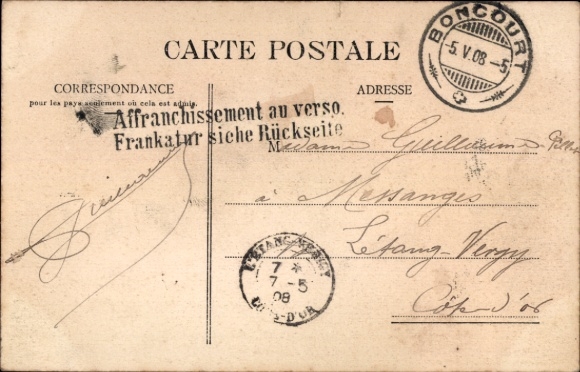 CARTE POSTALE
CORRESPONDANCE
pour les pays seulement où cela est admis.
ADRESSE
BONCOURT
-5.V.08.-5
Affranchissement au verso.
Frankatur siehe Rückseite
Madame Guillaume
à Messanges
L'étang-Vergy
Côte-d'or
Guillaume
L'ETANG-VERGY
7 *
7 -5
08
COTE-D'OR